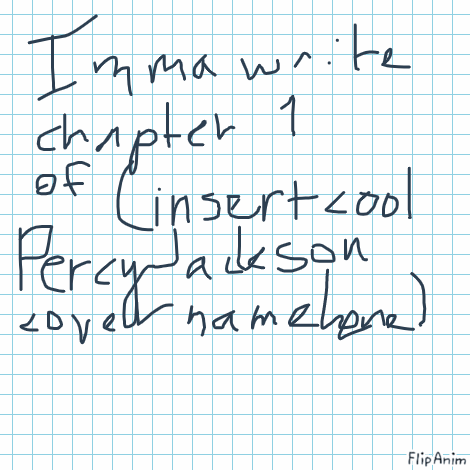 Imma write
chapter 1
of (insert cool
Percy Jackson
cover name here)
FlipAnim